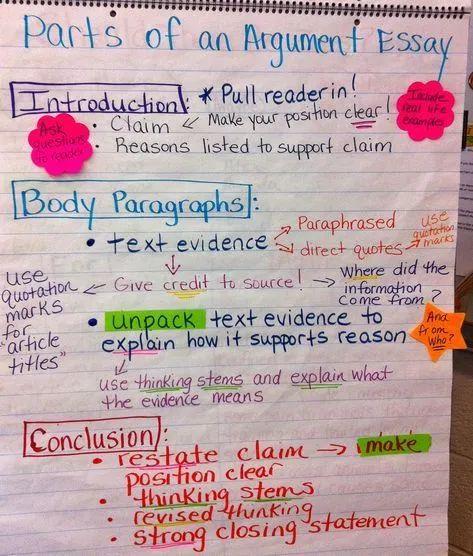 Parts of an Argument Essay
Introduction: * Pull reader in!
Include
real life
examples
Ask
questions
to reader
• Claim ← Make your position clear!
• Reasons listed to support claim
Body Paragraphs:
• text evidence → Paraphrased
→ direct quotes → use
quotation
marks
Give credit to source! → Where did the
information
come from?
And
from
Who?
use
quotation
marks
for
"article
titles"
• unpack text evidence to
explain how it supports reason
use thinking stems and explain what
the evidence means
Conclusion:
• restate claim → make
position clear
• thinking stems
• revised thinking
• strong closing statement